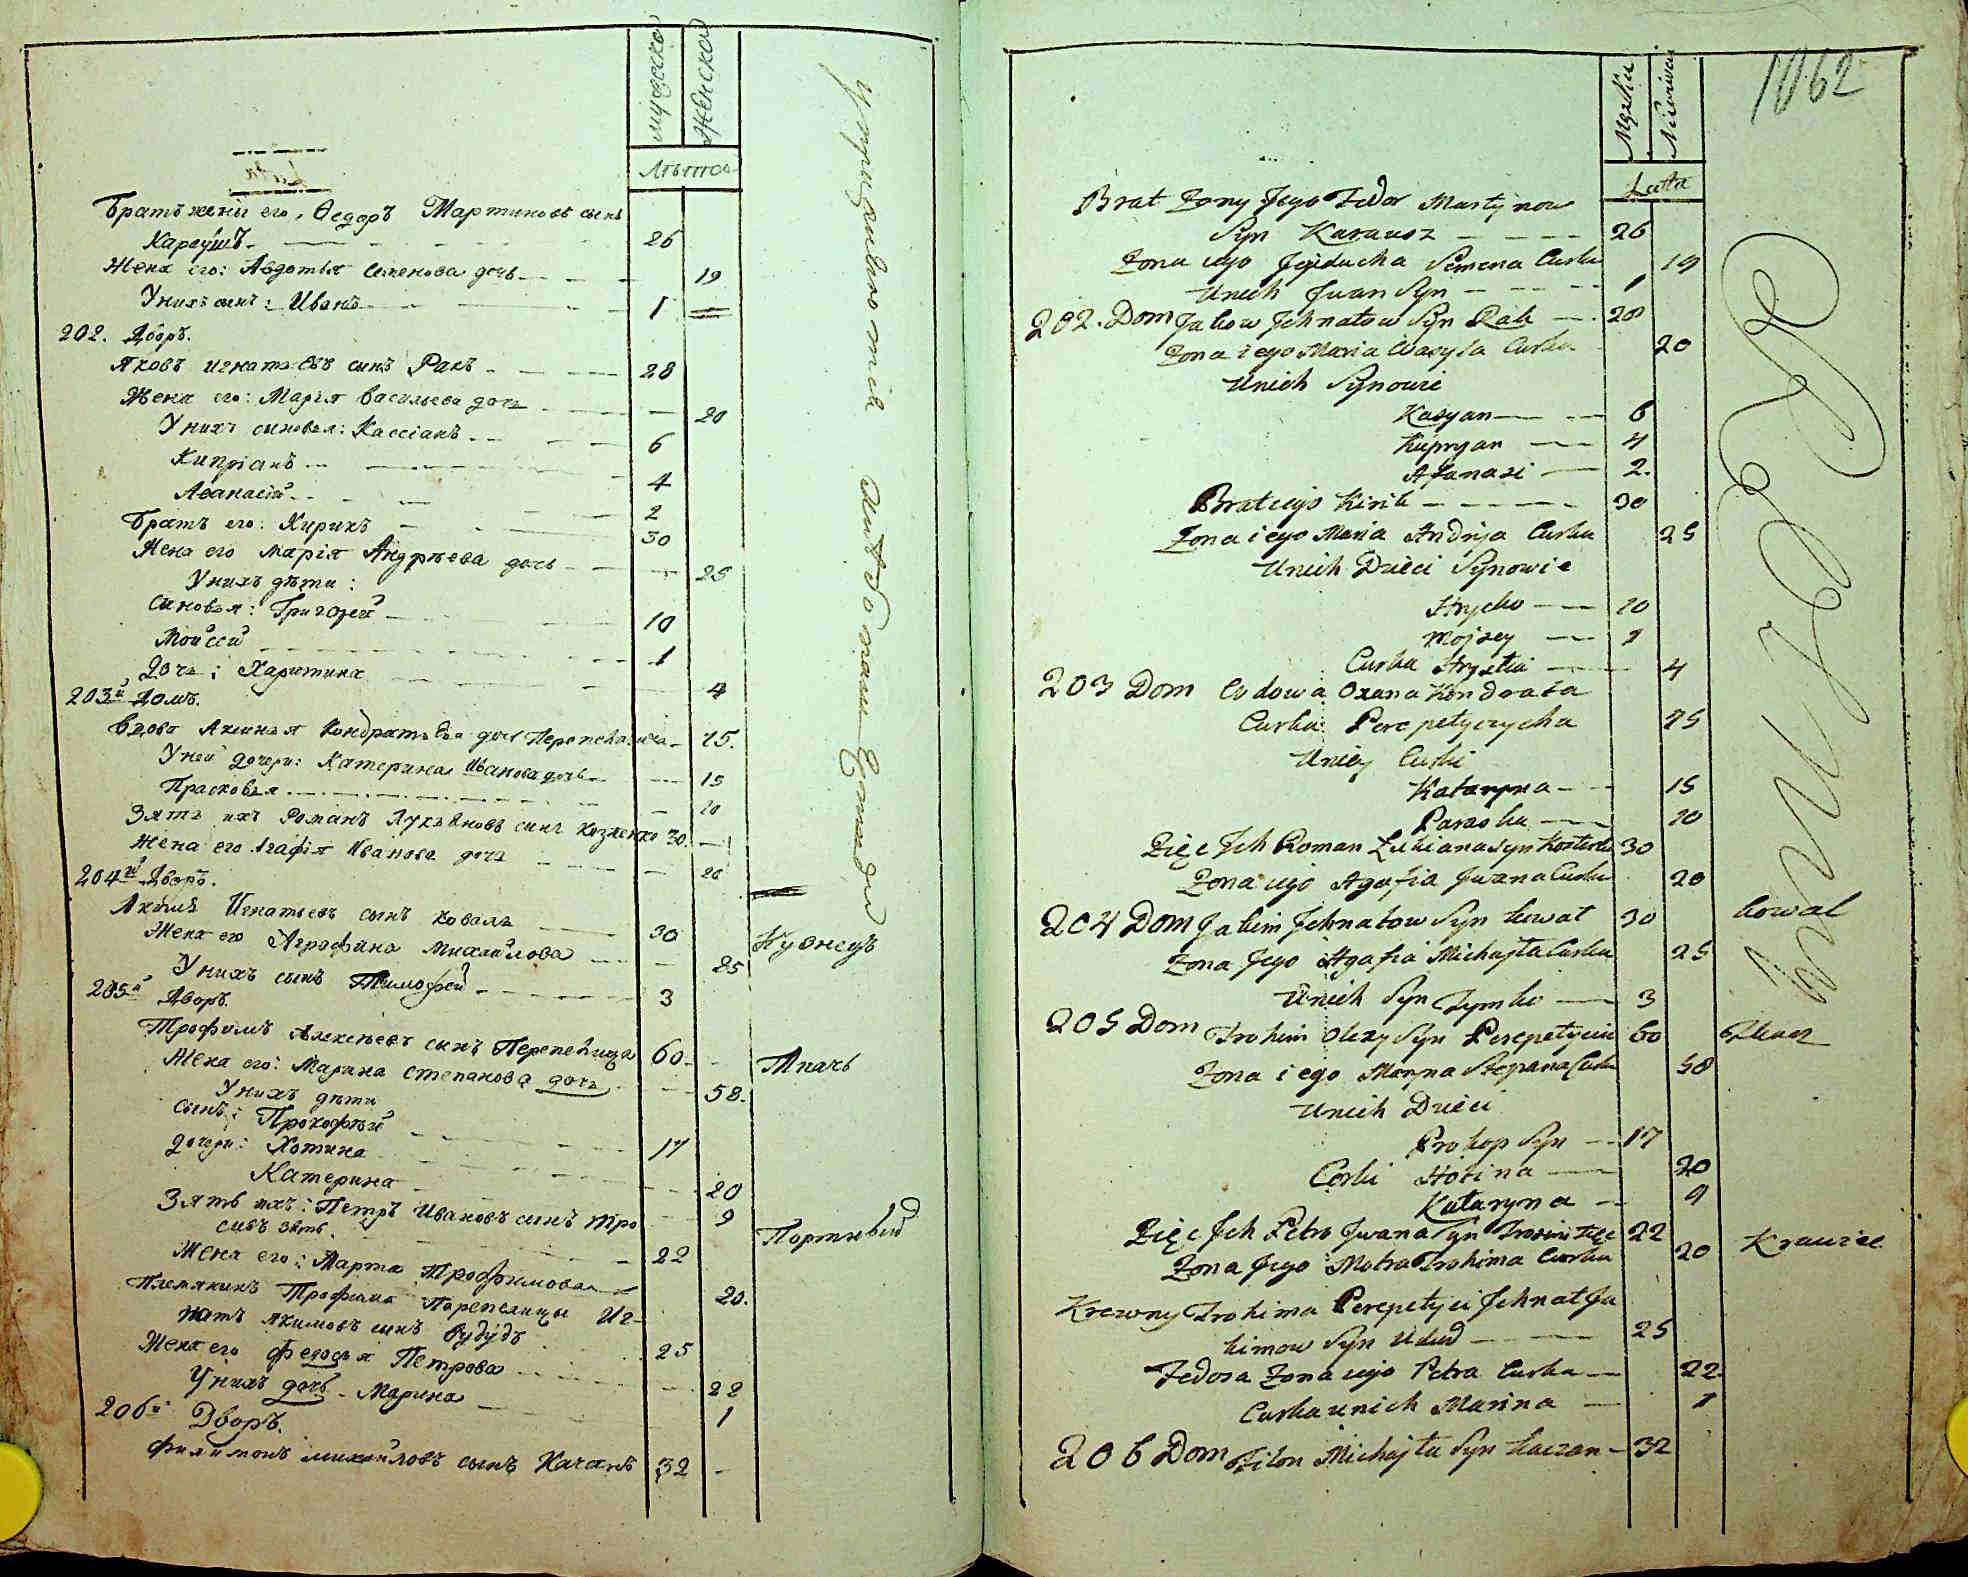 мужеска
женска
Лѣта
Братъ жены его, Ѳедоръ Мартиновъ сынъ
Караушъ 26
Жена его: Авдотья Семенова дочь 19
У нихъ сынъ: Иванъ 1
202. Дворъ.
Яковъ Игнатьевъ сынъ Ракъ 28
Жена его: Марія Васильева дочь 20
У нихъ сыновья: Кассіанъ 6
Кипріанъ 4
Аѳанасій 2
Братъ его: Кирикъ 30
Жена его Марія Андрѣева дочь 25
У нихъ дѣти:
Сыновья: Григорей 10
Мойсей 1
Дочь: Харитина 4
203й Домъ.
Вдова Аксинья Кондратьева дочь 75.
У ней дочери: Катерина Иванова дочь 15
Прасковья 10
Зять ихъ Романъ Лукьяновъ сынъ 30
Жена его Агафія Иванова дочь 20
204й Дворъ.
Акимъ Игнатьевъ сынъ Коваль 30 Кузнецъ
Жена его Аграфина Михайлова 25
У нихъ сынъ Тимофей 3
205й Дворъ.
Трофимъ Алексѣевъ сынъ Перепелица 60 Ткачь
Жена его: Марина Степанова дочь 58.
У нихъ дѣти
Сынъ: Прокофѣй 17
Дочери: Хотина 20
Катерина 9
Зять ихъ: Петръ Ивановъ сынъ Тро Портный
зять. 22
Жена его: Марта Трофимова 20.
Племянникъ Трофима Перепелицы Иг-
натъ Якимовъ сынъ 25
Жена его Федосья Петрова 22
У нихъ дочь Марина 1
206й Дворъ.
Филимонъ Михайловъ сынъ Качанъ 32
1062
Męzkie
Lata
Brat Zony Jego Fedor Martynow
Syn Karausz 26
Zona iego Semena Curka 19
Unich Jwan Syn 1
202. Dom Jakow Jehnatow Syn Rak 28
Zona iego Maria Wasyla Curka 20
Unich Synowie
Kasyan 6
Kupryan 4
Afanasi 2.
Brat iego Kirik 30
Zona iego Maria Andrya Curka 25
Unich Dzieci Synowie
Hrycko 10
Mojzey 1
Curka Hrystia 4
203 Dom Wdowa Oxana Kondrata
Curka Perepetyczycha 75
Uniey Curki
Kataryna 15
Paraska 10
Zięc Jch Roman Lukiana Syn 30
Zona iego Agafia Jwana Curka 20
204 Dom Jakim Jehnatow Syn kowal 30 kowal
Zona Jego Agafia Michajła Curka 25
Unich Syn Tymko 3
205 Dom Trohim Olexy Syn 60 Tkacz
Zona iego Maryna Stepana Curka 58
Unich Dzieci
Prokop Syn 17
Corki Hotina 20
Kataryna 9
Zięc Jch Petro Jwana Syn 22 Krawiec
Zona Jego Motra Trohima Curka 20
Krewny Trohima Perepetyci Jehnat Ja
kimow Syn Udud 25
Fedosa Zona iego Petra Curka 22
Curka unich Marina 1
206 Dom Filon Michajła Syn kaczan 32